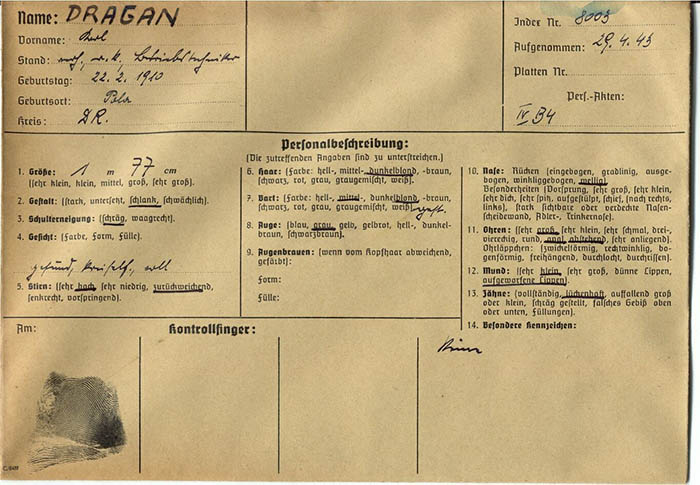 Name: DRAGAN
Vorname: Karl
Stand: verh., r.k., Betriebstechniker
Geburtstag: 22. 2. 1910
Geburtsort: Pola
Kreis: DR.
Index Nr. 8003
Aufgenommen: 29. 4. 43
Platten Nr.
Pers.-Akten:
IV B4
Personalbeschreibung:
(Die zutreffenden Angaben sind zu unterstreichen.)
1. Größe: 1 m 77 cm
(sehr klein, klein, mittel, groß, sehr groß).
2. Gestalt: (stark, untersetzt, schlank, schwächlich).
3. Schulterneigung: (schräg, waagrecht).
4. Gesicht: (Farbe, Form, Fülle).
gesund, voll
5. Stirn: (sehr hoch, sehr niedrig, zurückweichend,
senkrecht, vorspringend).
6. Haar: (Farbe: hell-, mittel-, dunkelblond, -braun,
schwarz, rot, grau, graugemischt, weiß).
7. Bart: (Farbe: hell-, mittel-, dunkelblond, -braun,
schwarz, rot, grau, graugemischt, weiß)
8. Auge: (blau, grau, gelb, gelbrot, hell-, dunkel-
braun, schwarzbraun).
9. Augenbrauen: (wenn vom Kopfhaar abweichend,
gefärbt):
Form:
Fülle:
10. Nase: Rücken (eingebogen, gradlinig, ausge-
bogen, winkliggebogen, wellig).
Besonderheiten (Vorsprung, sehr groß, sehr klein,
sehr dick, sehr spitz, aufgestülpt, schief, (nach rechts,
links), stark sichtbare oder verdeckte Nasen-
scheidewand, Adler-, Trinkernase).
11. Ohren: (sehr groß, sehr klein, sehr schmal, drei-
vierechig, rund, angl. abstehend, sehr anliegend).
Ohrläppchen: (zwickelförmig, rechtwinklig, bo-
genförmig, freihängend, durchlocht, durchrissen).
12. Mund: (sehr klein, sehr groß, dünne Lippen,
aufgeworfene Lippen).
13. Zähne: (vollständig, lückenhaft, auffallend groß
oder klein, schräg gestellt, falsches Gebiß oben
oder unten, Füllungen).
14. Besondere Kennzeichen:
Am:
Kontrollfinger: